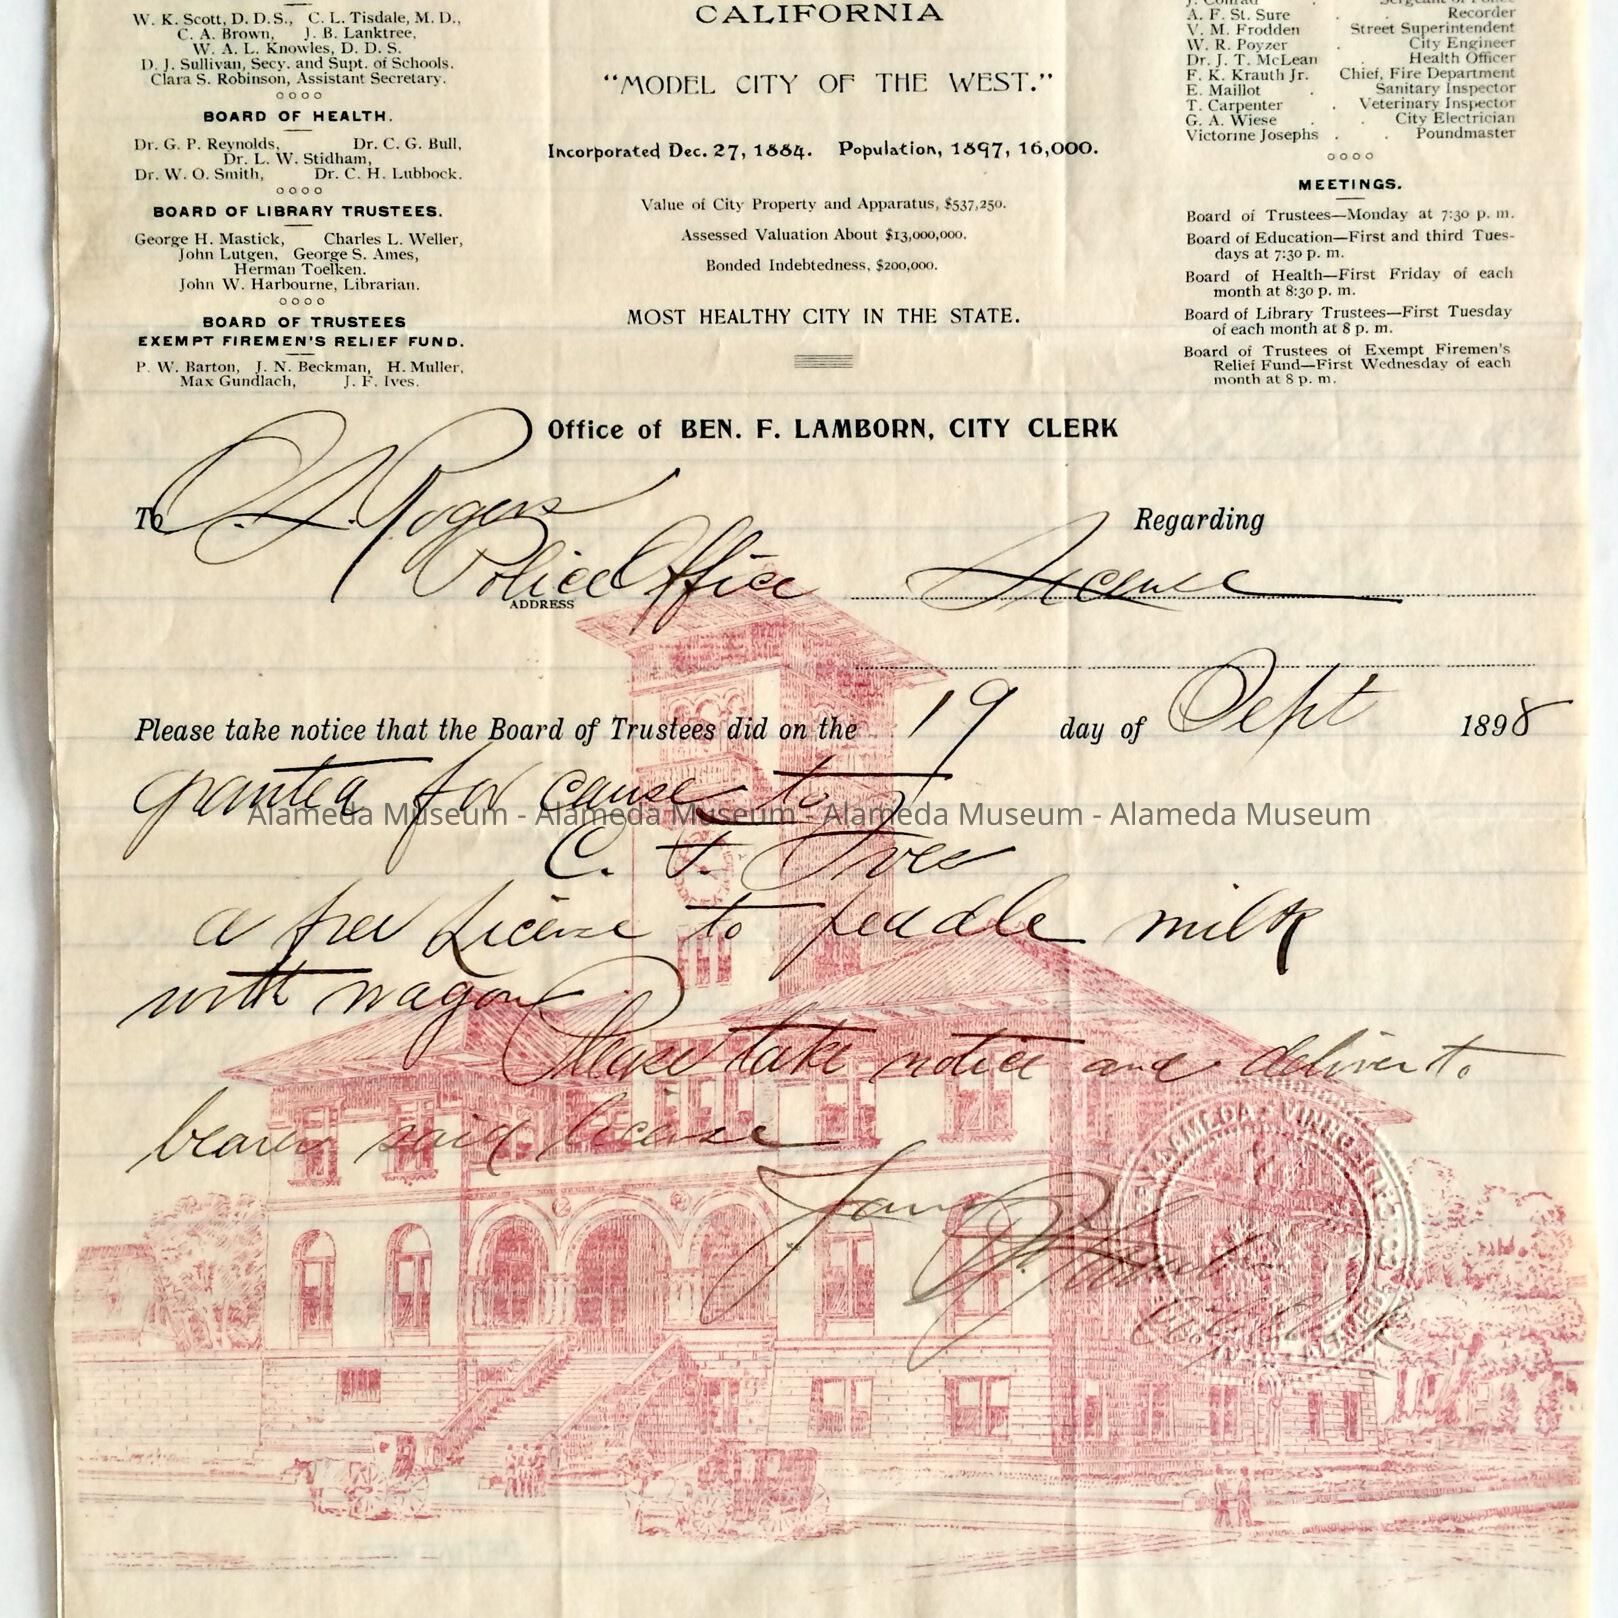 W. K. Scott, D. D. S., C. L. Tisdale, M. D.,
C. A. Brown, J. B. Lanktree,
W. A. L. Knowles, D. D. S.
D. J. Sullivan, Secy. and Supt. of Schools.
Clara S. Robinson, Assistant Secretary.
BOARD OF HEALTH.
Dr. G. P. Reynolds, Dr. C. G. Bull,
Dr. L. W. Stidham,
Dr. W. O. Smith, Dr. C. H. Lubbock.
BOARD OF LIBRARY TRUSTEES.
George H. Mastick, Charles L. Weller,
John Lutgen, George S. Ames,
Herman Toelken.
John W. Harbourne, Librarian.
BOARD OF TRUSTEES
EXEMPT FIREMEN'S RELIEF FUND.
P. W. Barton, J. N. Beckman, H. Muller,
Max Gundlach, J. F. Ives.
CALIFORNIA
"MODEL CITY OF THE WEST."
Incorporated Dec. 27, 1884. Population, 1897, 16,000.
Value of City Property and Apparatus, $537,250.
Assessed Valuation About $13,000,000.
Bonded Indebtedness, $200,000.
MOST HEALTHY CITY IN THE STATE.
J. Conrad Sergeant of Police
A. F. St. Sure . . Recorder
V. M. Frodden Street Superintendent
W. R. Poyzer . City Engineer
Dr. J. T. McLean . Health Officer
F. K. Krauth Jr. Chief, Fire Department
E. Maillot . Sanitary Inspector
T. Carpenter . Veterinary Inspector
G. A. Wiese . . City Electrician
Victorine Josephs . . Poundmaster
MEETINGS.
Board of Trustees—Monday at 7:30 p. m.
Board of Education—First and third Tues-
days at 7:30 p. m.
Board of Health—First Friday of each
month at 8:30 p. m.
Board of Library Trustees—First Tuesday
of each month at 8 p. m.
Board of Trustees of Exempt Firemen's
Relief Fund—First Wednesday of each
month at 8 p. m.
Office of BEN. F. LAMBORN, CITY CLERK
To Rogers Regarding
Police Office License
ADDRESS
Please take notice that the Board of Trustees did on the 19 day of Sept 1898
granted for cause to
Alameda Museum - Alameda Museum - Alameda Museum - Alameda Museum
C. F. Ives
a free License to peddle milk
with wagon
Please take notice and deliver to
bearer said license
City Clerk